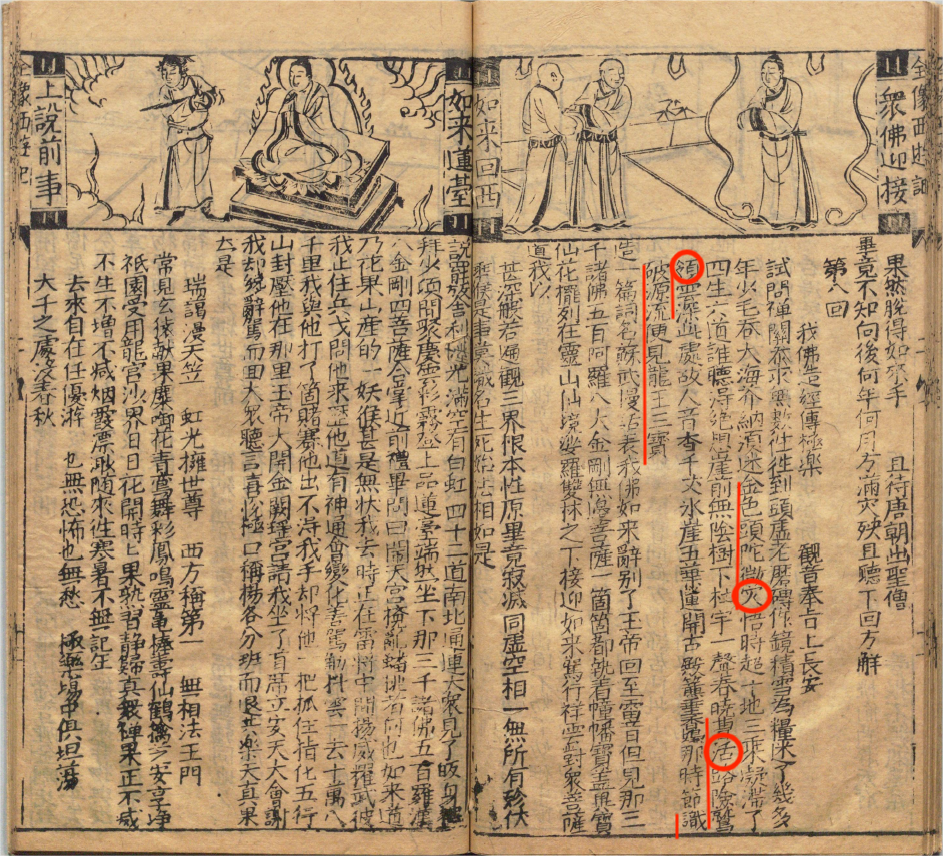 全像西遊記
衆佛迎接
如来回西
果然脫得如來手 且待唐朝出聖僧
畢竟不知向後何年何月方滿灾殃且聽下回分解
第八回
我佛造經傳極樂 觀音奉旨上長安
試問禪關叅求無數往往到頭虛老磨磚作鏡積雪為糧迷了幾多
年少毛吞大海芥納須迷金色頭陀微㳄悟時超十地三乘凝滯了
四生六道誰聽得絶想崖前無陰樹下杜宇一聲春曉活路險鷲
領雲深此處故人音杳千丈氷崖五葉蓮開古殿簾垂那時節識
破源流便見龍王三寶
造一篇詞名蘇武慢話表我佛如來辭别了玉帝回至雷音但見那三
千諸佛五百阿羅八大金剛無邊菩薩一箇箇都執着幢幡寶盖異寶
仙花擺列在靈山仙境娑羅雙林之下接迎如來駕行祥雲對衆菩薩
道我以
甚深般若遍觀三界根本性原畢竟寂滅同虛空相一無所有殄伏
乖猴是事莫識名生死始法相如是
如来蓮臺
上說前事
全像西遊記
說罷放舍利之光滿空有白虹四十二道南北通連大衆見了皈身
拜少頃間聚慶雲彩霧登上品蓮臺端然坐下那三千諸佛五百羅漢
八金剛四菩薩合掌近前禮畢問曰鬧天宮攪亂蟠桃者何也如來道
乃花果山産的一妖猴甚是無狀我去時正在雷將中間揚威耀武彼
我止住兵戈問他來歷他道有神通會變化善駕觔抖雲一去十萬八
千里我與他打了箇賭賽他出不淂我手却將他一把抓住指化五行
山封壓他在那里玉帝大開金闕瑤宮請我坐了首席立安天大會謝
我却纔辭駕而回大衆聽言喜悅極口稱揚各分班而退共樂天真果
是
瑞靄漫天竺 虹光擁世尊 西方稱第一 無相法王門
常見玄猿献果麋鹿啣花青鸞舞彩鳳鳴靈龜捧壽仙鶴擒芝安享净
祇園受用龍宮沙界日日花開時上果熟習静歸真叅禪果正不滅
不生不增不減烟霞漂渺隨來往寒暑不無記年
去來自在任優游 也無恐怖也無愁 極樂塲中俱坦蕩
大千之處没春秋